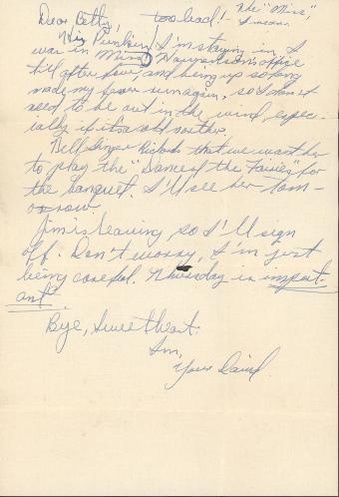 Dear Betty, too bad! - The "Miss",
I mean.
Hi, Punkin! I'm staying in. I
was in Miss office
till after four, and being up so long
made my fever run again, so I don't
need to be out in the wind, espec-
ially if it's a cold norther.
Tell Ginger that we want her
to play the "Dance of the Fairies" for
the banquet. I'll see her tom-
orrow.
Jim's leaving so I'll sign
off. Don't worry, I'm just
being careful. Thursday is import-
ant.
Bye, Sweetheart.
I'm,
Your David